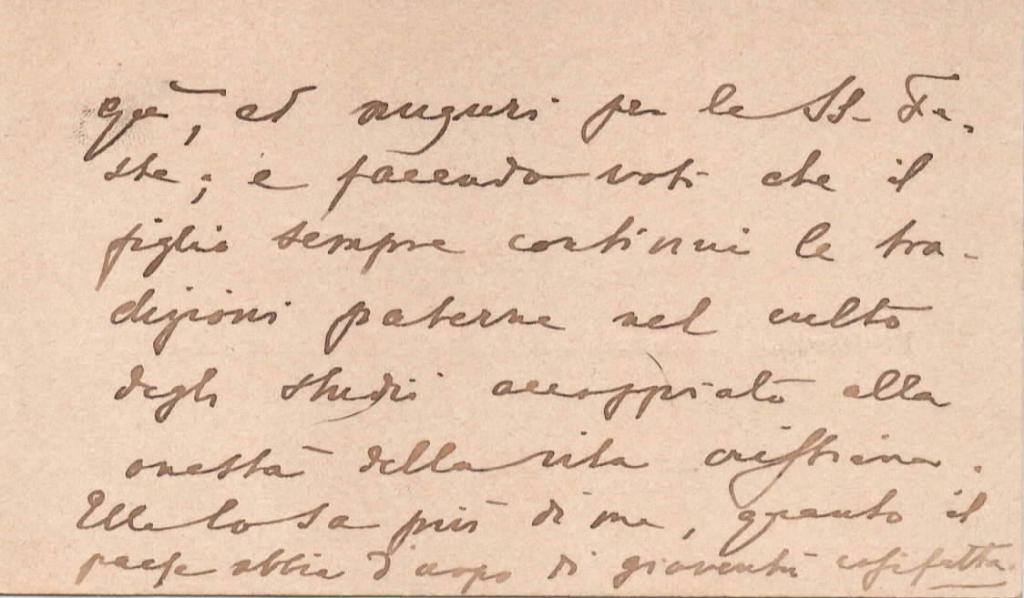 ed auguri per le SS. Fe-
ste; e facendo voti che il
figlio sempre continui le tra-
dizioni paterne nel culto
degli studi accoppiato alla
onestà della vita cristiana.
Ella lo sa più di me, quanto il
paese abbia d'uopo di gioventù cosifatta.